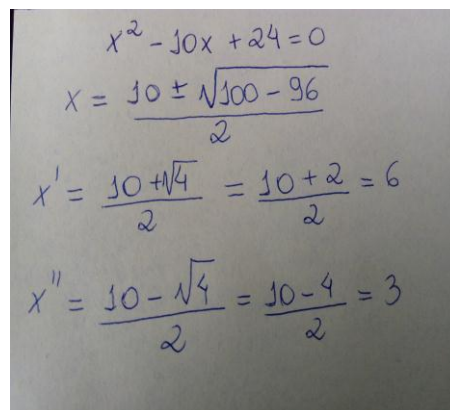 x² - 10x + 24 = 0
x = (10 ± √(100 - 96)) / 2
x' = (10 + √4) / 2 = (10 + 2) / 2 = 6
x'' = (10 - √4) / 2 = (10 - 4) / 2 = 3